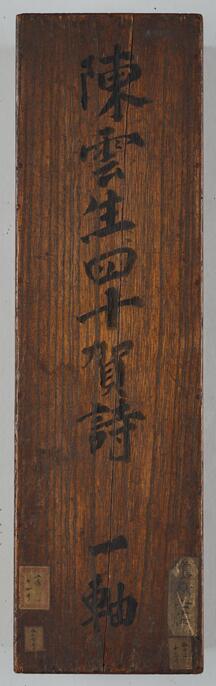 陳雲生四十賀詩 一軸